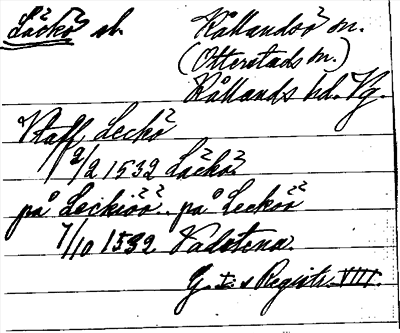 Läckö sl. Kållandsö sn.
(Otterstads sn.)
Kållands hd. Vg.
Staff Leckö
12/2 1532 Läckö
på Leckiöö .. på Lecköö
7/10 1532 Vadstena
G. I:s Registr. VIII.